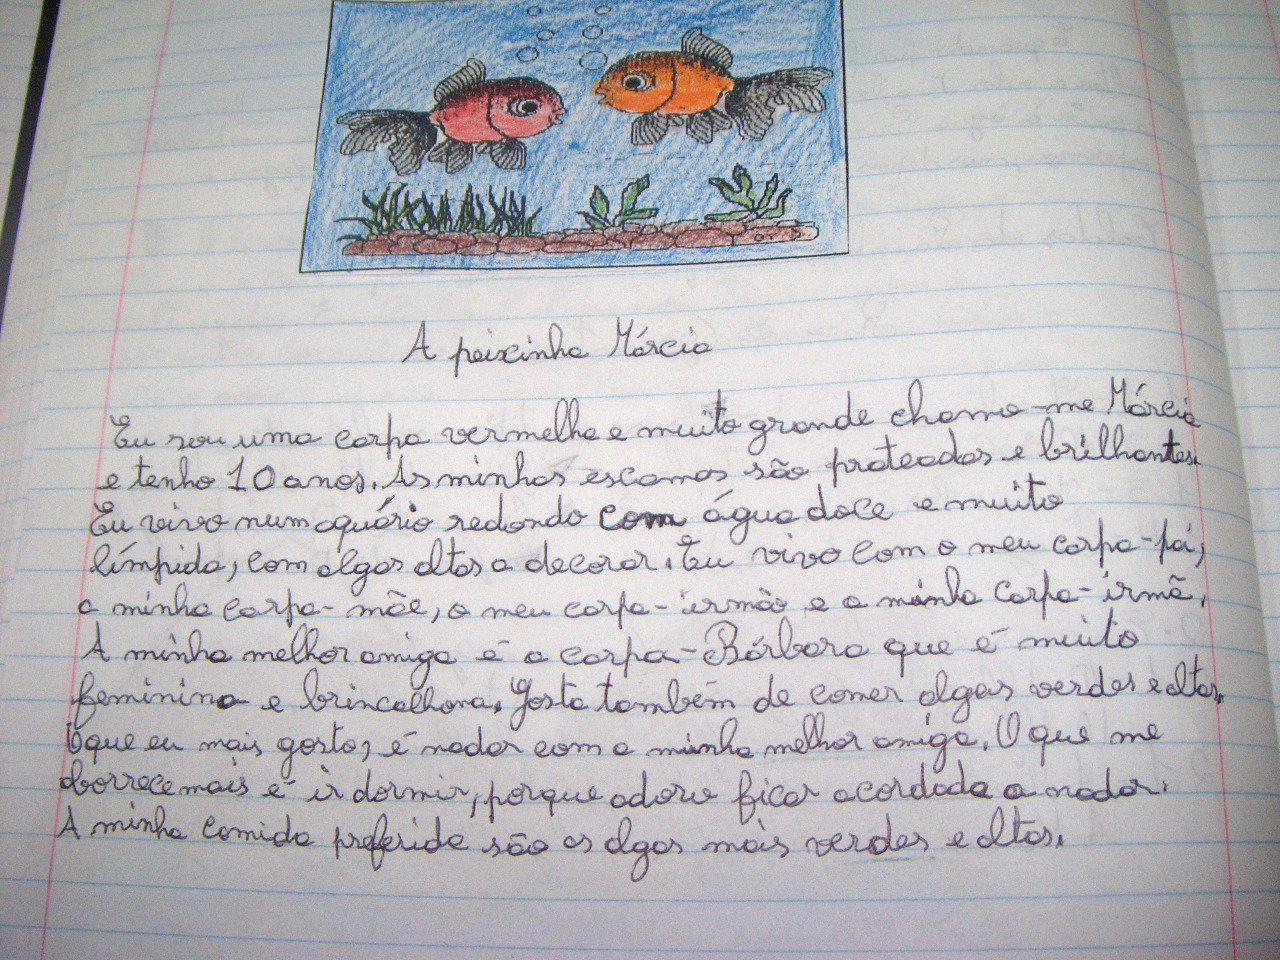 A peixinha Márcia
Eu sou uma carpa vermelha e muito grande chamo-me Márcia
e tenho 10 anos. As minhas escamas são prateadas e brilhantes.
Eu vivo num aquário redondo com água doce e muito
límpida, com algas altas a decorar. Eu vivo com o meu carpa-pai,
a minha carpa-mãe, o meu carpa-irmão e a minha carpa-irmã.
A minha melhor amiga é a carpa-Bárbara que é muito
feminina e brincalhona. Gosta também de comer algas verdes e altas.
O que eu mais gosto, é nadar com a minha melhor amiga. O que me
aborrece mais é ir dormir, porque adoro ficar acordada a nadar.
A minha comida preferida são as algas mais verdes e altas.